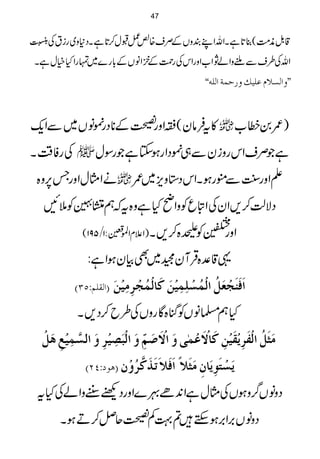 47
قابل مذمت) بناتا ہے۔ اللہ اپنے بندوں کے صرف خالص عمل قبول کرتا ہے۔ دنیاوی رزق کی بہ نسبت
اللہ کی طرف سے ملنے والے ثواب اور اس کی رحمت کے خزانوں کے بارے میں تمہارا کیا خیال ہے۔
”والسلام عليك ورحمة الله“
(عمر بن خطاب ﷜ کا یہ فرمان) فقہ اور نصیحت کے نادر نمونوں میں سے ایک
ہے جو صرف اس روزن سے ہی نمودار ہو سکتا ہے جو رسول ﷺ کی رفاقت۔
علم اور سنت سے منور ہو۔ اس دستاویز میں عمر ﷜ نے امثال اور جس پر وہ
دلالت کریں ان کی اتباع کو واضح کیا ہے وہ یہ کہ ہم متشابہین کو ملائیں
اور مختلفین کو علیحدہ کریں۔ (اعلام الموقعین: ۱/۱۹۵)
یہی قاعدہ قرآن مجید میں بھی بیان ہوا ہے:
اَفَنَجْعَلُ الْمُسْلِمِيْنَ كَالْمُجْرِمِيْنَ (القلم:٣٥)
کیا ہم مسلمانوں کو گناہ گاروں کی طرح کر دیں۔
مَثَلُ الْفَرِيْقَيْنِ كَالْاَعْمٰى وَ الْاَصَمِّ وَ الْبَصِيْرِ وَ السَّمِيْعِ هَلْ
يَسْتَوِيَانِ مَثَلًا اَفَلَا تَذَكَّرُوْنَ (هود:٢٤)
دونوں گروہوں کی مثال ہے اندھے بہرے اور دیکھنے سننے والے کی کیا یہ
دونوں برابر ہو سکتے ہیں تم بہت کم نصیحت حاصل کرتے ہو۔